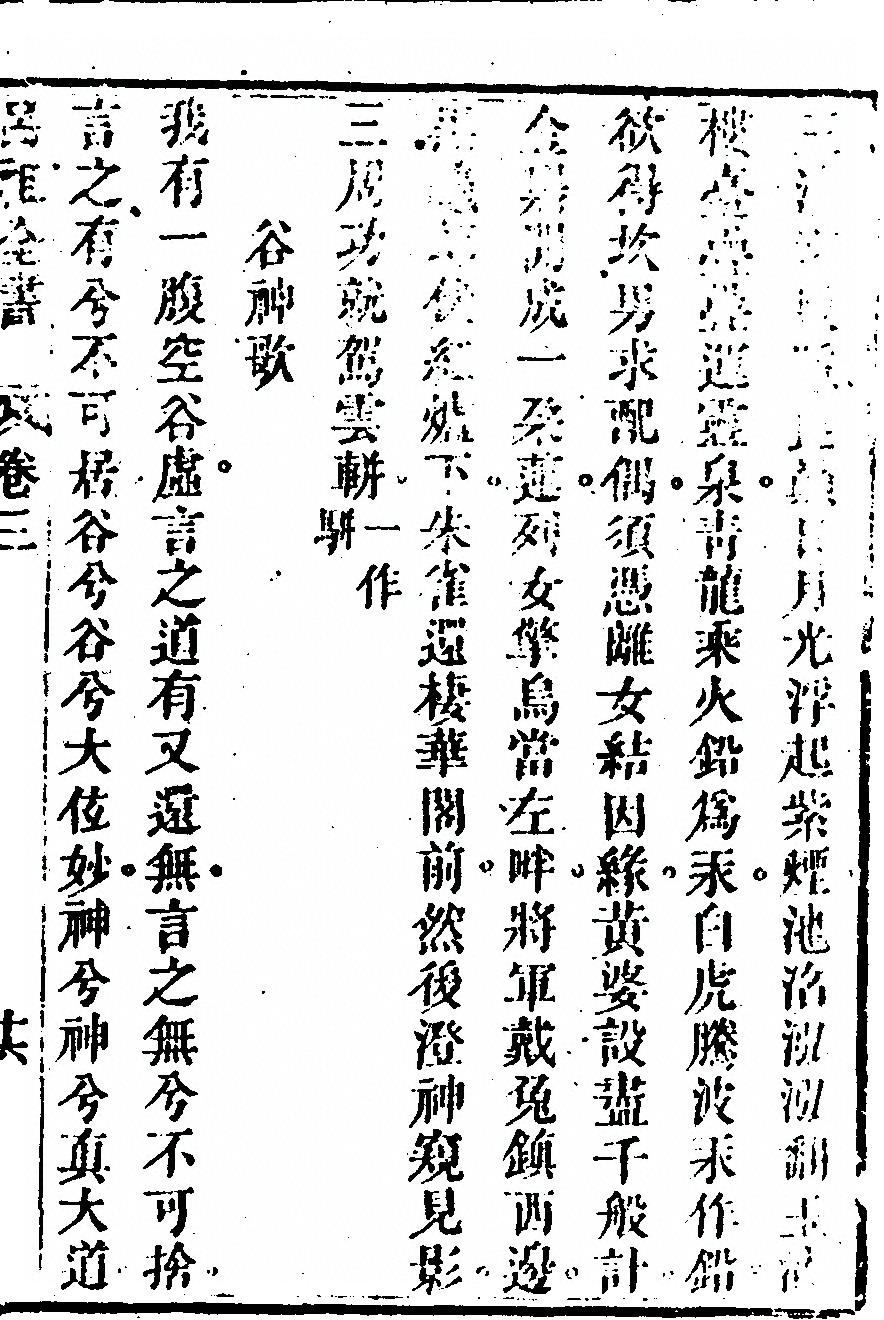 日月光浮起紫煙池沼泓泓翻玉
樓臺疊疊運靈泉。青龍乘火鉛爲汞。白虎騰波汞作鉛。
欲得坎男求配偶。須憑離女結因緣。黃婆設盡千般計。
金鼎開成一朶蓮。列女擎烏當左畔。將軍戴兔鎮西邊。
伏紅爐下。朱雀還棲華閣前。然後澄神窺見影。
三周功就駕雲軿。一作駢
谷神歌
我有一腹空谷虛。言之道有又還無。言之無兮不可捨。
言之有兮不可居谷兮谷兮大位妙。神兮神兮眞大道。
呂祖全書 卷三